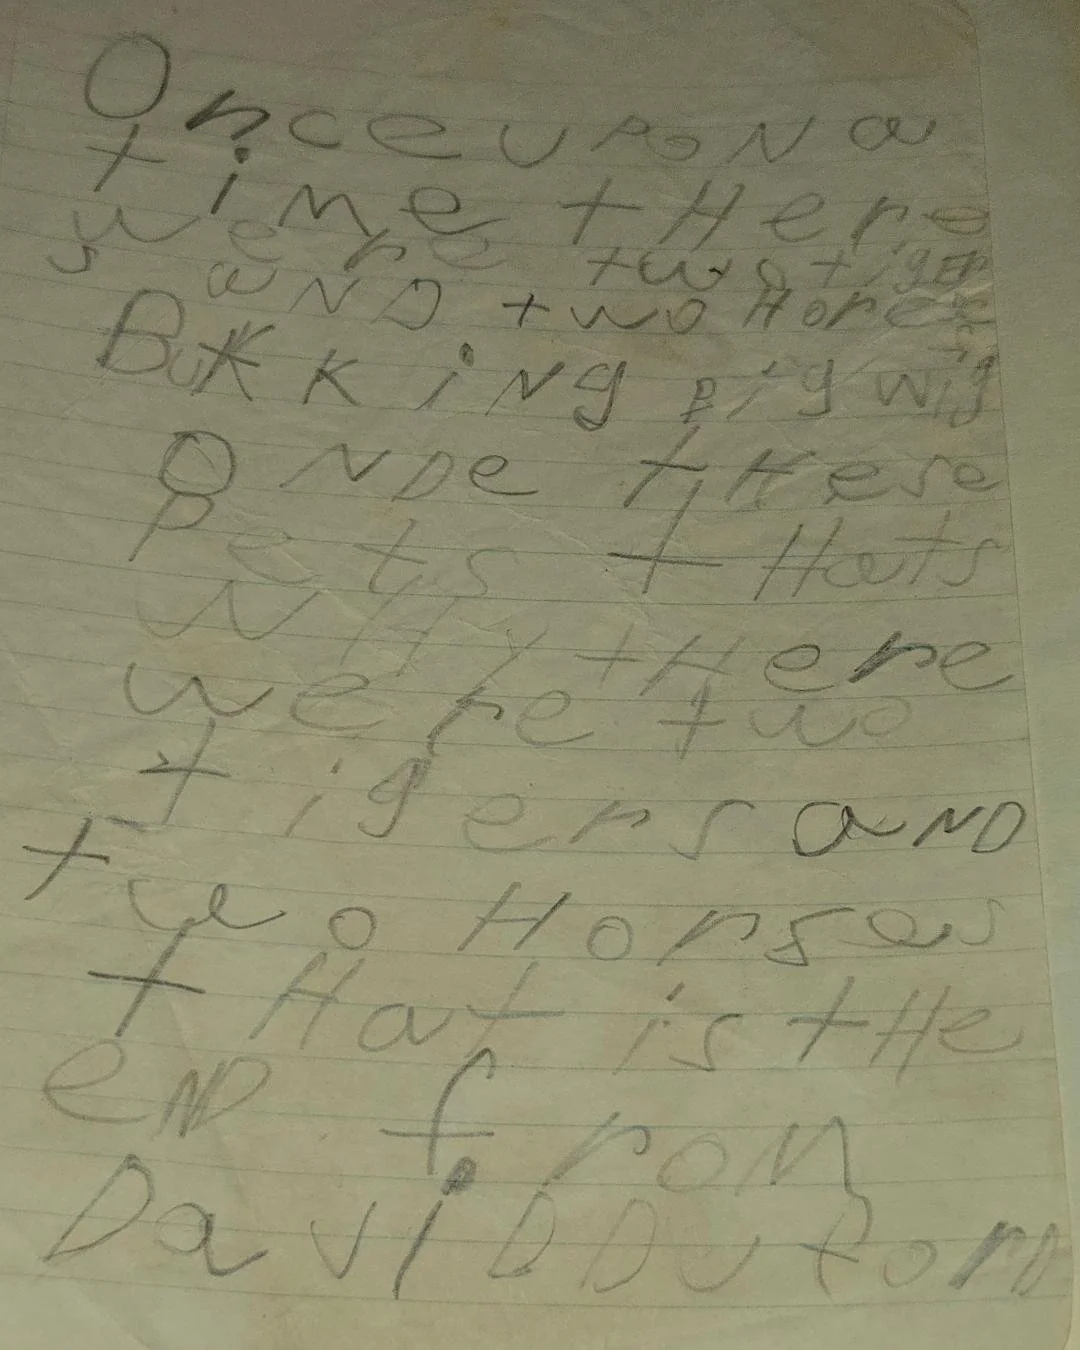 Once upoN a
time tHere
were two tiger
s aND two Horses
But King Pigwig
ONDe tHese
Pets tHats
WHy tHere
were two
tigers aND
two Horses
tHat is tHe
eND from
DaviD Duford